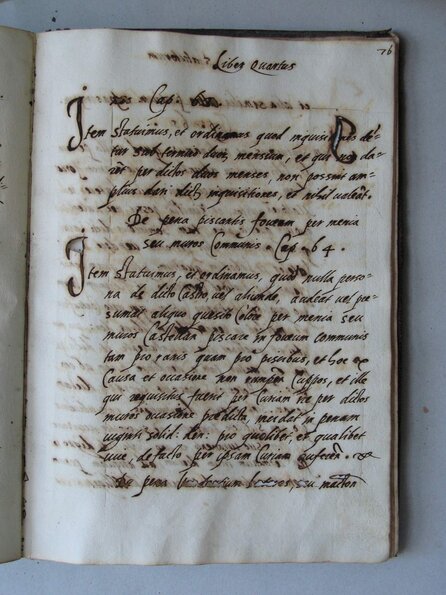 76
Liber Quartus
Cap.
Item Statuimus, et ordinamus quod inquisitiones de-
tur sub firma duos mensium, et qui no da-
per dictos duos menses, non possint am-
plius dari dictæ inquisitiones, et nihil valeat.
De pena piscantis foueam per menia
seu muros Communis. Cap. 64.
Item Statuimus, et ordinamus, quod nulla perso-
na de dicto Castro vel aliunde, audeat vel pre-
sumat aliquo quesito Colore per menia seu
muros Castellari piscare in foueam communis
tam pro ranis quam pro piscibus, et hoc ex
Causa et occasione non et ille
qui requisitus fuerit per Curiam ire per dictos
muros occasione predicta, incidat in penam
viginti solid: den: pro quolibet, et qualibet
vice, de facto per ipsam Curiam auferen.
De pena seu